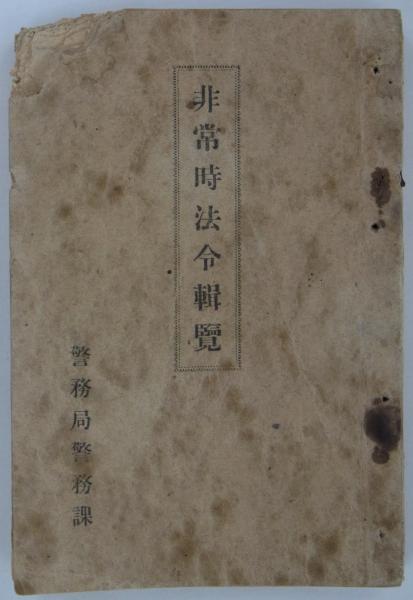 非常時法令輯覽
警務局警務課